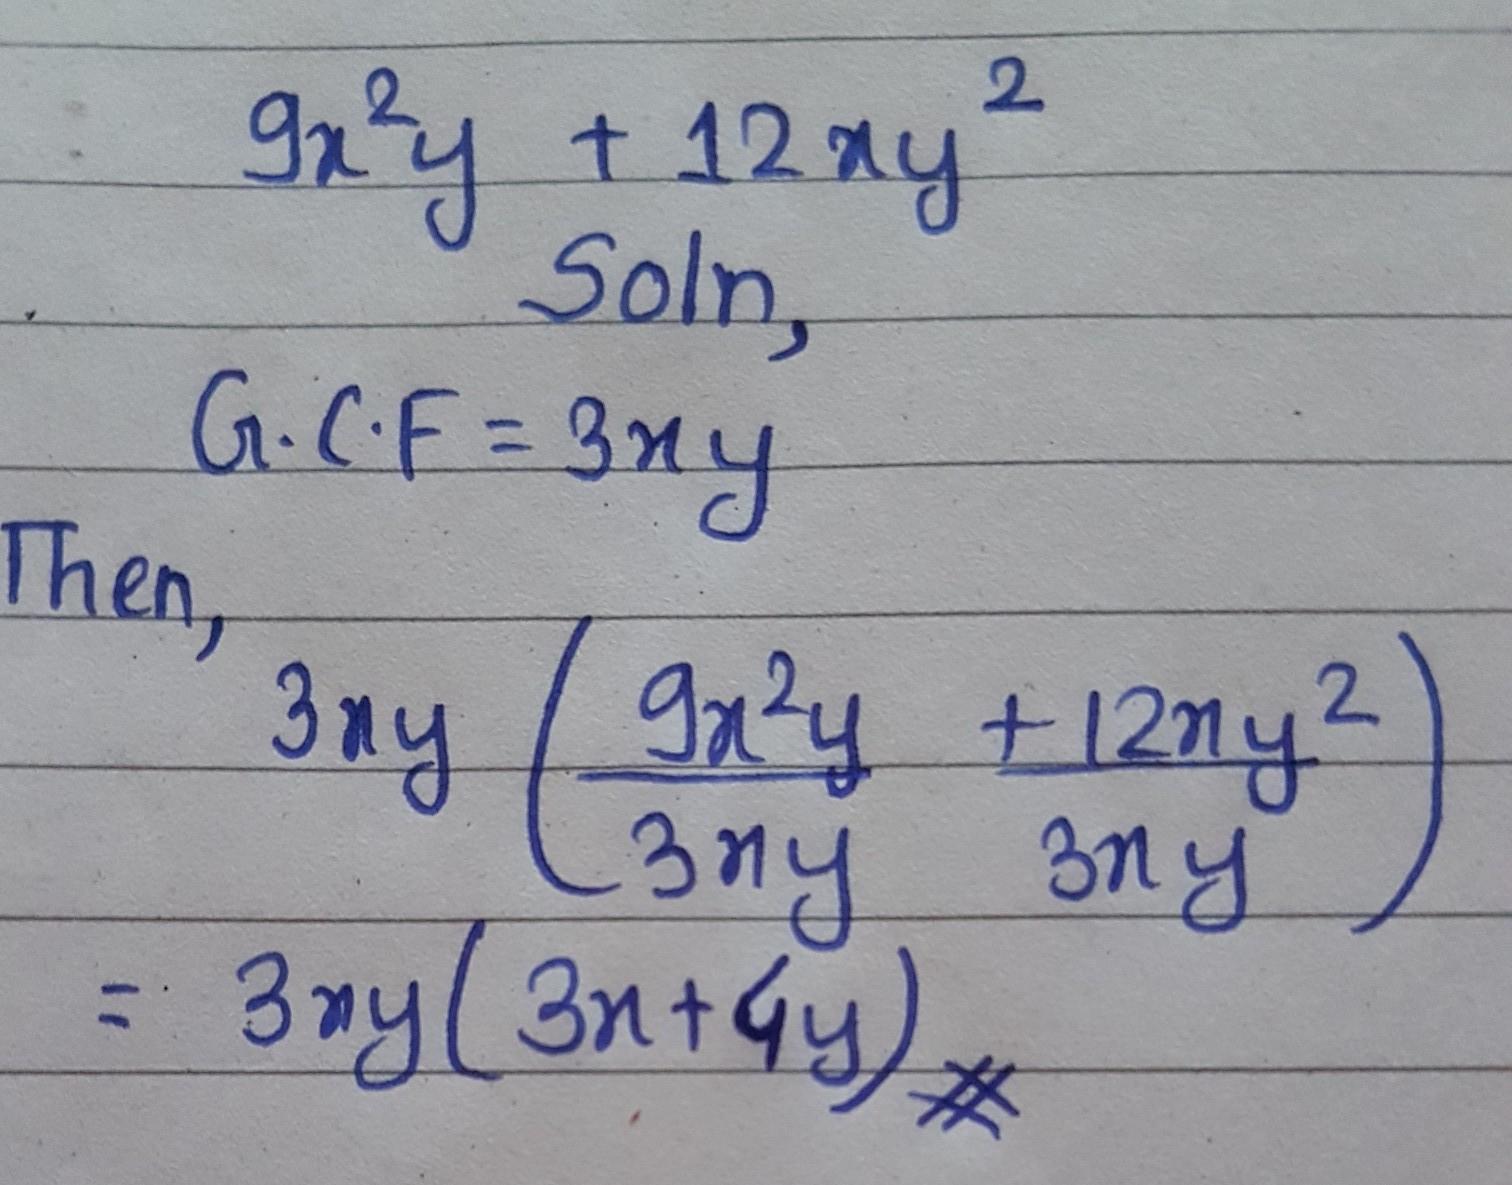 9x²y + 12xy²
Soln,
G.C.F = 3xy
Then,
3xy ( 9x²y + 12xy² )
3xy 3xy
= 3xy ( 3x + 4y )